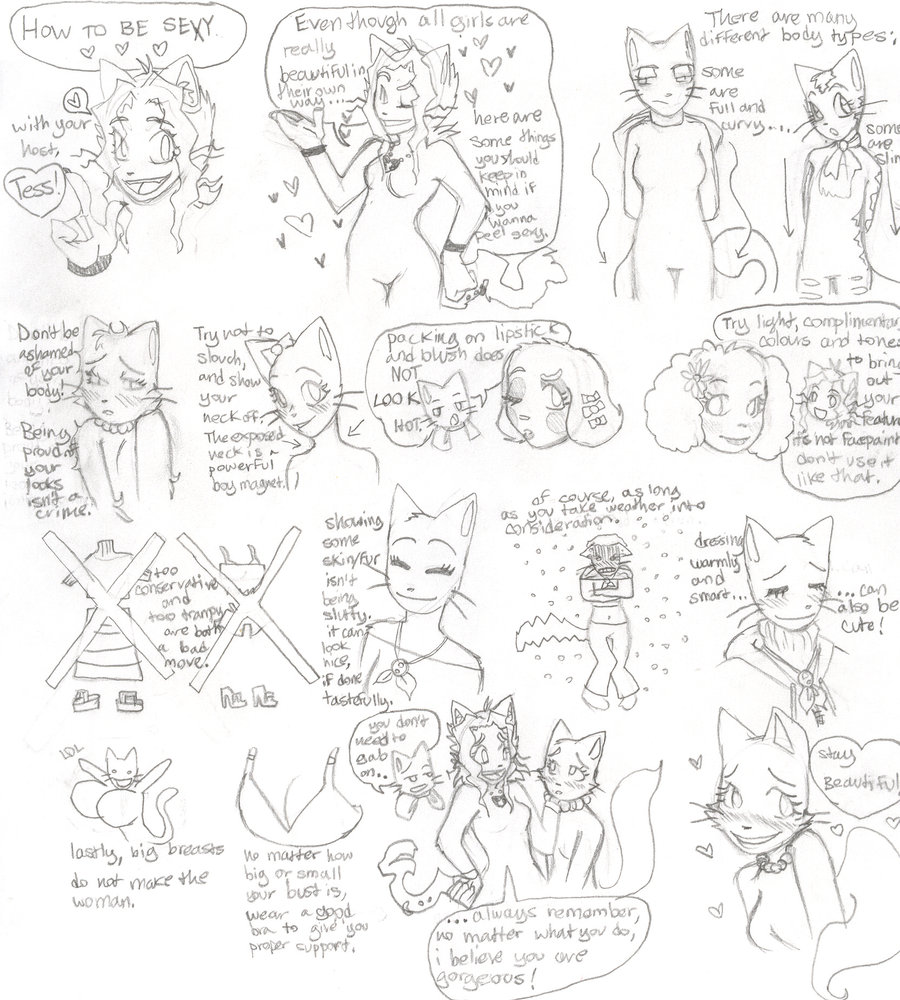 HOW TO BE SEXY.
with your
host,
Tess!
Even though all girls are
really
beautiful in
their own
way...
here are
some things
you should
keep in
mind if
you
wanna
feel sexy.
There are many
different body types;
some
are
full and
curvy....
some
are
slim
Don't be
ashamed
of your
body!
Being
proud of
your
looks
isn't a
crime.
Try not to
slouch,
and show
your
neck off.
The exposed
neck is a
powerful
boy magnet.
packing on lipstick
and blush does
NOT
LOOK
HOT.
Try light, complimentary
colours and tones
to bring
out
your
features
it's not Facepaint
don't use it
like that.
too
conservative
and
too trampy
are both
a bad
move.
showing
some
skin/fur
isn't
being
slutty.
it can
look
nice,
if done
tastefully.
of course, as long
as you take weather into
consideration.
dressing
warmly
and
smart...
...can
also be
cute!
LOL
lastly, big breasts
do not make the
woman.
no matter how
big or small
your bust is,
wear a good
bra to give you
proper support.
you don't
need to
slab
on..
...always remember,
no matter what you do,
i believe you are
gorgeous!
stay
Beautiful!